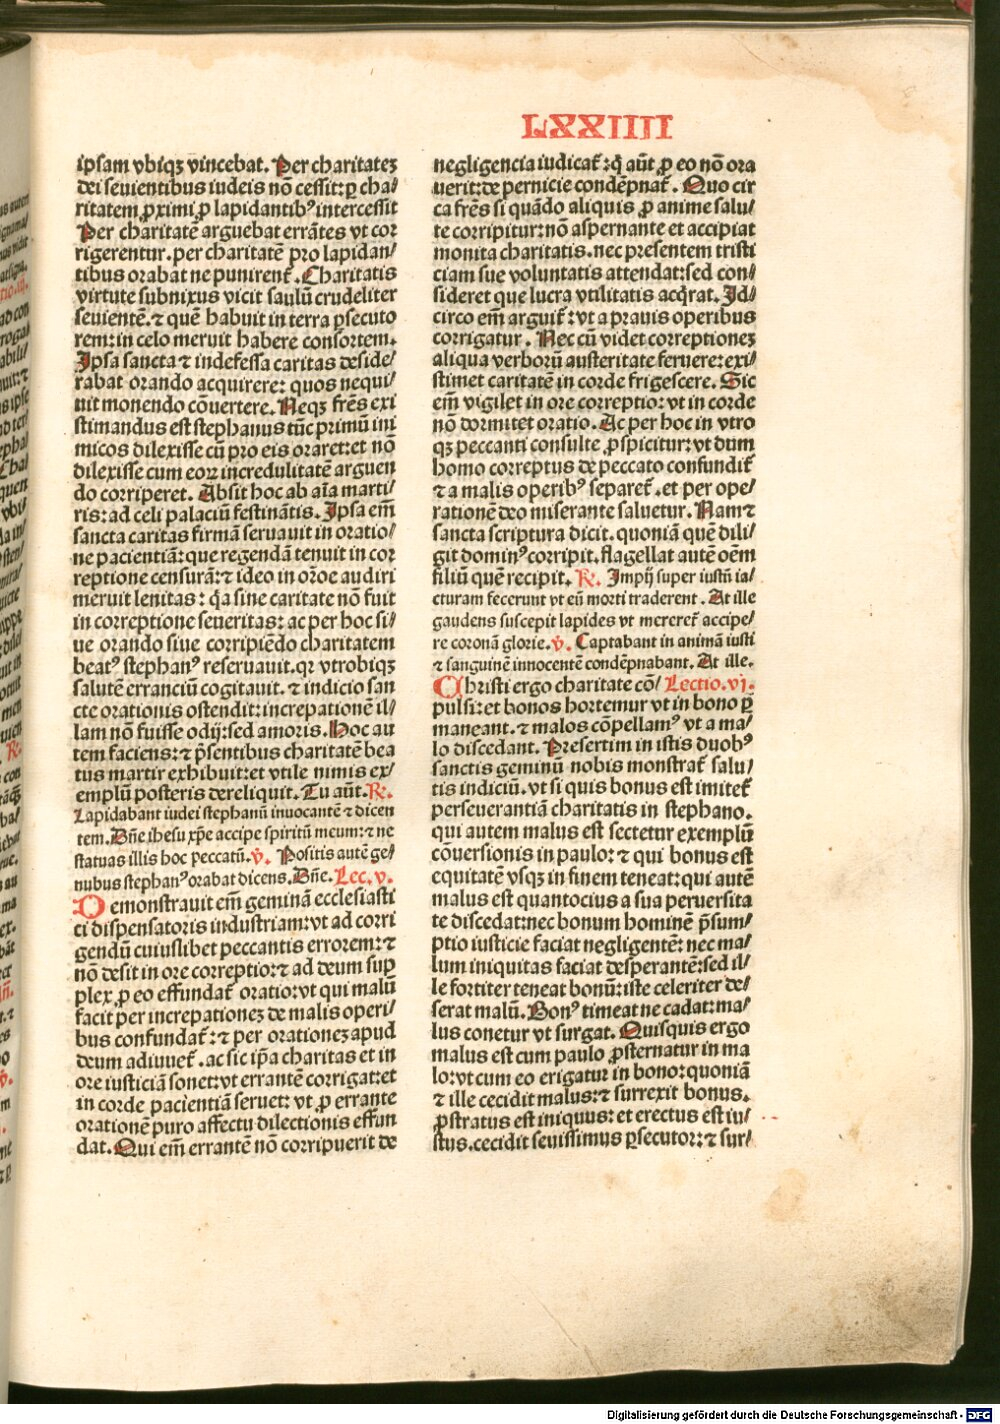 LXXIIII
ipsam vbiqꝫ vincebat. Per charitateꝫ
dei seuientibus iudeis nō cessit: ꝑ cha/
ritatem ꝓximi ꝓ lapidantibꝰ intercessit
Per charitatē arguebat errātes vt cor
rigerentur. per charitatē pro lapidan/
tibus orabat ne punirent᷑. Charitatis
virtute subnixus vicit saulū crudeliter
seuientē. ⁊ quē habuit in terra ꝑsecuto
rem: in celo meruit habere consortem.
Ipsa sancta ⁊ indefessa caritas deside/
rabat orando acquirere: quos nequi/
uit monendo cōuertere. Neqꝫ frēs exi
stimandus est stephanus tūc primū ini
micos dilexisse cū pro eis oraret: et nō
dilexisse cum eoꝝ incredulitatē arguen
do corriperet. Absit hoc ab aīa marti/
ris: ad celi palaciū festinātis. Ipsa em̄
sancta caritas firmā seruauit in oratio/
ne pacientiā: que regendā tenuit in cor
reptione censurā: ⁊ ideo in or̄oe audiri
meruit lenitas: q̄a sine caritate nō fuit
in correptione seueritas: ac per hoc si/
ue orando siue corripiēdo charitatem
beatꝰ stephanꝰ reseruauit. qr vtrobiqꝫ
salutē erranciū cogitauit. ⁊ indicio san
cte orationis ostendit: increpationē il/
lam nō fuisse odij: sed amoris. Hoc au
tem faciens: ⁊ p̄sentibus charitatē bea
tus martir exhibuit: et vtile nimis ex/
emplū posteris dereliquit. Tu aūt. ℟.
Lapidabant iudei stephanū inuocantē ⁊ dicen
tem. Dn̄e ihesu xp̄e accipe spiritū meum: ⁊ ne
statuas illis hoc peccatū. ℣. Positis autē ge/
nubus stephanꝰ orabat dicens. Dn̄e. Lec. v.
Demonstrauit em̄ geminā ecclesiasti
ci dispensatoris industriam: vt ad corri
gendū cuiuslibet peccantis errorem: ⁊
nō desit in ore correptio: ⁊ ad deum sup̄
plex ꝓ eo effundat᷑ oratio: vt qui malū
facit per increpationeꝫ de malis operi/
bus confundat᷑: ⁊ per orationeꝫ apud
deum adiuuet᷑. ac sic ip̄a charitas et in
ore iusticiā sonet: vt errantē corrigat: et
in corde pacientiā seruet: vt ꝓ errante
orationē puro affectu dilectionis effun
dat. Qui em̄ errantē nō corripuerit de
negligencia iudicat᷑: q̄ aūt ꝓ eo nō ora
uerit: de pernicie condēpnat᷑. Quo cir
ca frēs si quādo aliquis ꝓ anime salu/
te corripitur: nō aspernante et accipiat
monita charitatis. nec presentem tristi
ciam sue voluntatis attendat: sed con/
sideret que lucra vtilitatis acq̄rat. Id/
circo em̄ arguit᷑: vt a prauis operibus
corrigatur. Nec cū videt correptioneꝫ
aliqua verborū austeritate feruere: exi/
stimet caritatē in corde frigescere. Sic
em̄ vigilet in ore correptio: vt in corde
nō dormitet oratio. Ac per hoc in vtro
qꝫ peccanti consulte ꝓspicitur: vt dum
homo correptus de peccato confundit᷑
⁊ a malis operibꝰ separet᷑. et per ope/
rationē deo miserante saluetur. Nam ⁊
sancta scriptura dicit. quoniā quē dili/
git dominꝰ corripit. flagellat autē oēm
filiū quē recipit. ℟. Impij super iustū ia/
cturam fecerunt vt eū morti traderent. At ille
gaudens suscepit lapides vt mereret᷑ accipe/
re coronā glorie. ℣. Captabant in animā iusti
⁊ sanguinē innocentē condēpnabant. At ille.
Christi ergo charitate cō/ Lectio. vi.
pulsi: et bonos hortemur vt in bono ꝑ
maneant. ⁊ malos cōpellamꝰ vt a ma/
lo discedant. Presertim in istis duobꝰ
sanctis geminū nobis monstrat᷑ salu/
tis indiciū. vt si quis bonus est imitet᷑
perseuerantiā charitatis in stephano.
qui autem malus est sectetur exemplū
cōuersionis in paulo: ⁊ qui bonus est
equitatē vsqꝫ in finem teneat: qui autē
malus est quantocius a sua peruersita
te discedat: nec bonum hominē p̄sum/
ptio iusticie faciat negligentē: nec ma/
lum iniquitas faciat desperantē: sed il/
le fortiter teneat bonū: iste celeriter de/
serat malū. Bonꝰ timeat ne cadat: ma/
lus conetur vt surgat. Quisquis ergo
malus est cum paulo ꝓsternatur in ma
lo: vt cum eo erigatur in bono: quoniā
⁊ ille cecidit malus: ⁊ surrexit bonus.
ꝓstratus est iniquus: et erectus est iu/
stus. cecidit seuissimus ꝑsecutor: ⁊ sur/
Digitalisierung gefördert durch die Deutsche Forschungsgemeinschaft - DFG